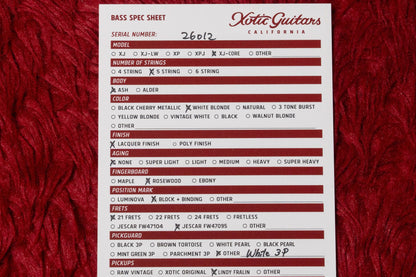 BASS SPEC SHEET
Xotic Guitars
CALIFORNIA
SERIAL NUMBER: 26012
MODEL
XJ XJ-LW XP XPJ XJ-CORE OTHER
NUMBER OF STRINGS
4 STRING 5 STRING 6 STRING
BODY
ASH ALDER
COLOR
BLACK CHERRY METALLIC WHITE BLONDE NATURAL 3 TONE BURST
YELLOW BLONDE VINTAGE WHITE BLACK WALNUT BLONDE
OTHER
FINISH
LACQUER FINISH POLY FINISH
AGING
NONE SUPER LIGHT LIGHT MEDIUM HEAVY SUPER HEAVY
FINGERBOARD
MAPLE ROSEWOOD EBONY
POSITION MARK
LUMINOVA BLOCK + BINDING OTHER
FRETS
21 FRETS 22 FRETS 24 FRETS FRETLESS
JESCAR FW47104 JESCAR FW47095 OTHER
PICKGUARD
BLACK 3P BROWN TORTOISE WHITE PEARL BLACK PEARL
MINT GREEN 3P PARCHMENT 3P OTHER White 3P
PICKUPS
RAW VINTAGE XOTIC ORIGINAL LINDY FRALIN OTHER